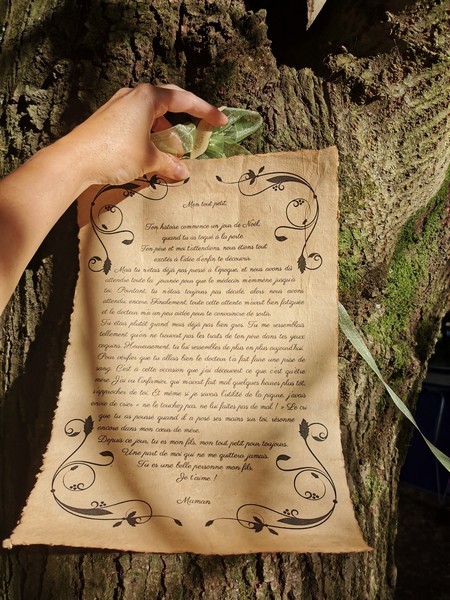 Mon tout petit,
Ton histoire commence un jour de Noël,
quand tu as toqué à la porte.
Ton père et moi t'attendions, nous étions tout
excités à l'idée d'enfin te découvrir.
Mais tu n'étais déjà pas pressé à l'époque, et nous avons dû
attendre toute la journée pour que le médecin m'emmène jusqu'à
toi. Pourtant, tu n'étais toujours pas décidé, alors nous avons
attendu encore. Finalement, toute cette attente m'avait bien fatiguée
et le docteur m'a un peu aidée pour te convaincre de sortir.
Tu étais plutôt grand mais déjà pas bien gras. Tu me ressemblais
tellement qu'on ne trouvait pas les traits de ton père dans tes yeux
coquins. Heureusement, tu lui ressembles de plus en plus aujourd'hui.
Pour vérifier que tu allais bien le docteur t'a fait faire une prise de
sang. C'est à cette occasion que j'ai découvert ce que c'est qu'être
mère. J'ai vu l'infirmier, qui m'avait fait mal quelques heures plus tôt,
s'approcher de toi. Et même si je savais l'utilité de la piqûre, j'avais
envie de crier « ne le touchez pas, ne lui faites pas de mal ! » Le cri
que tu as poussé quand il a posé ses mains sur toi, résonne
encore dans mon cœur de mère.
Depuis ce jour, tu es mon fils, mon tout petit pour toujours.
Une part de moi qui ne me quittera jamais.
Tu es une belle personne mon fils.
Je t'aime !
Maman